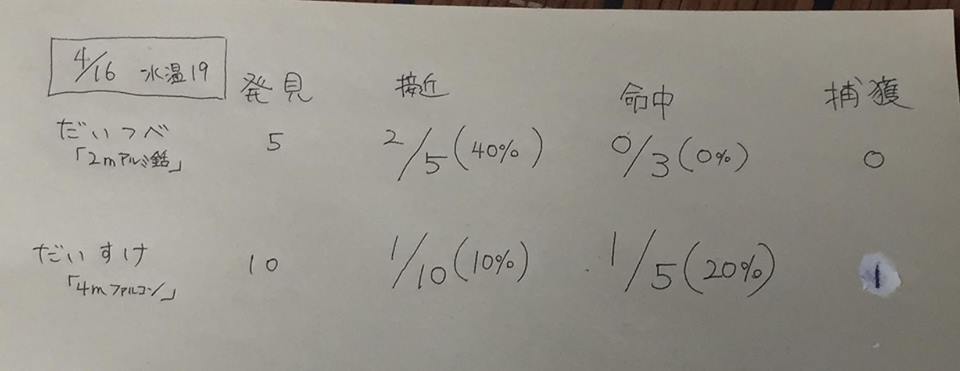 4/16 水温19
発見 接近 命中 捕獲
だいつべ 5 2/5(40%) 0/3(0%) 0
「2mアルミ銛」
だいすけ 10 1/10(10%) 1/5(20%) 1
「4mファルコン」